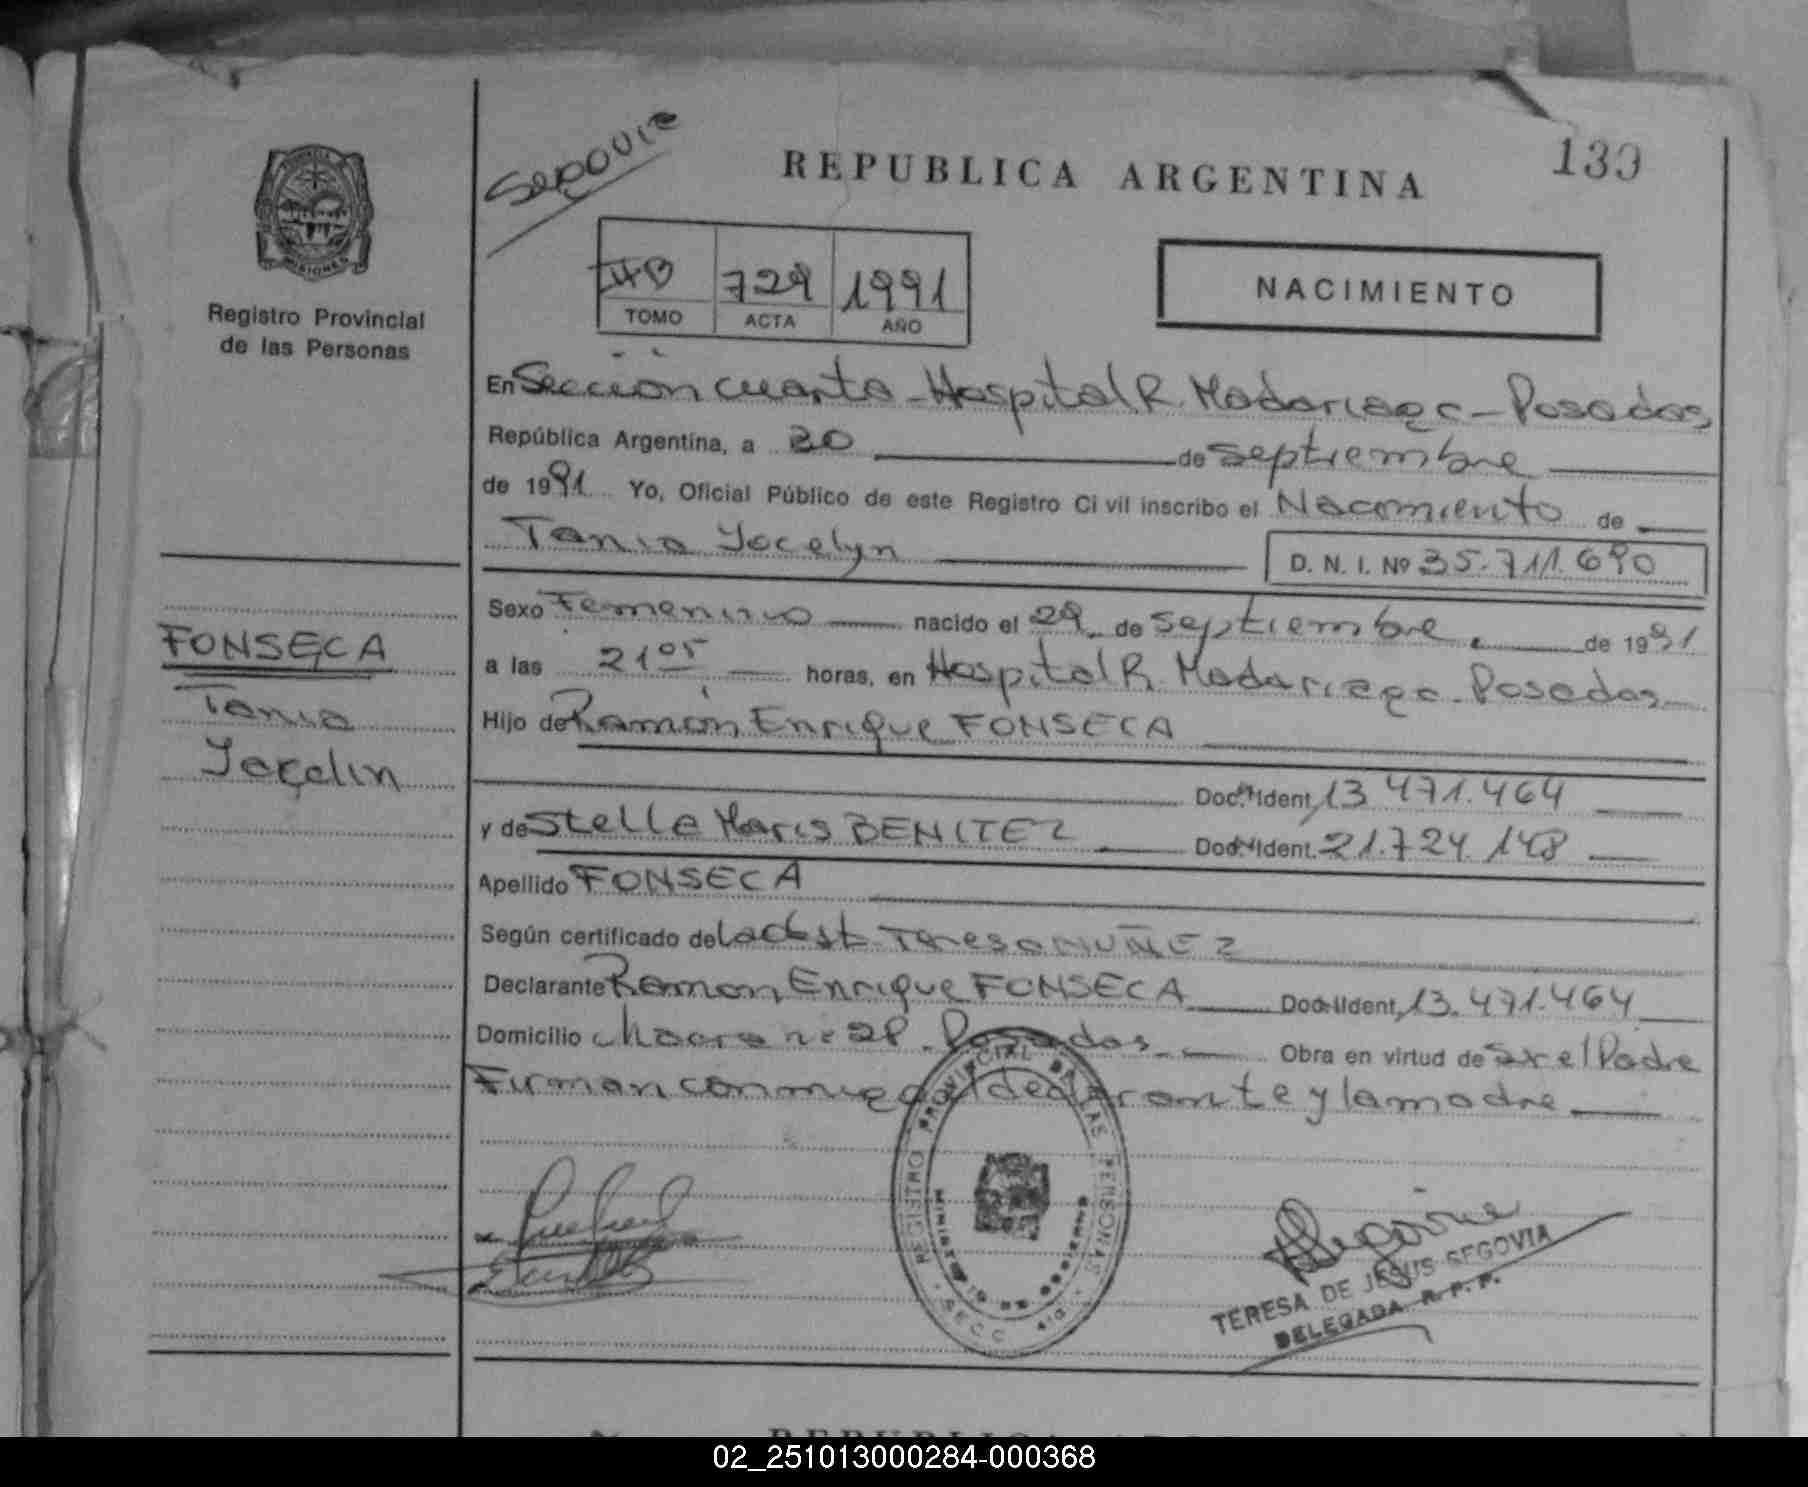 Segovia
REPUBLICA ARGENTINA
139
Registro Provincial
de las Personas
729 1991
TOMO ACTA AÑO
NACIMIENTO
En Sección cuarta - Hospital R. Madariaga - Posadas
República Argentina, a 30 de septiembre
de 1991 Yo, Oficial Público de este Registro Civil inscribo el Nacimiento de
Tania Jocelyn
D. N. I. Nº 35.711.690
Sexo Femenino nacido el 29 de septiembre de 1991
a las 21 05 horas, en Hospital R. Madariaga - Posadas
Hijo de Ramón Enrique FONSECA
Doc. Ident. 13.471.464
y de Stella Maris BENITEZ Doc. Ident. 21.724.148
Apellido FONSECA
Según certificado de la Obst. Teresa NUÑEZ
Declarante Ramon Enrique FONSECA Doc. Ident. 13.471.464
Domicilio Chacra nº 28 - Posadas Obra en virtud de Ser el Padre
Firman conmigo el declarante y la madre
FONSECA
Tania
Jocelin
REGISTRO PROVINCIAL DE LAS PERSONAS
SECC. 4ta
MINISTERIO DE GOBIERNO
Segovia
TERESA DE JESUS SEGOVIA
DELEGADA R. P. P.
REPUBLICA
02_251013000284-000368